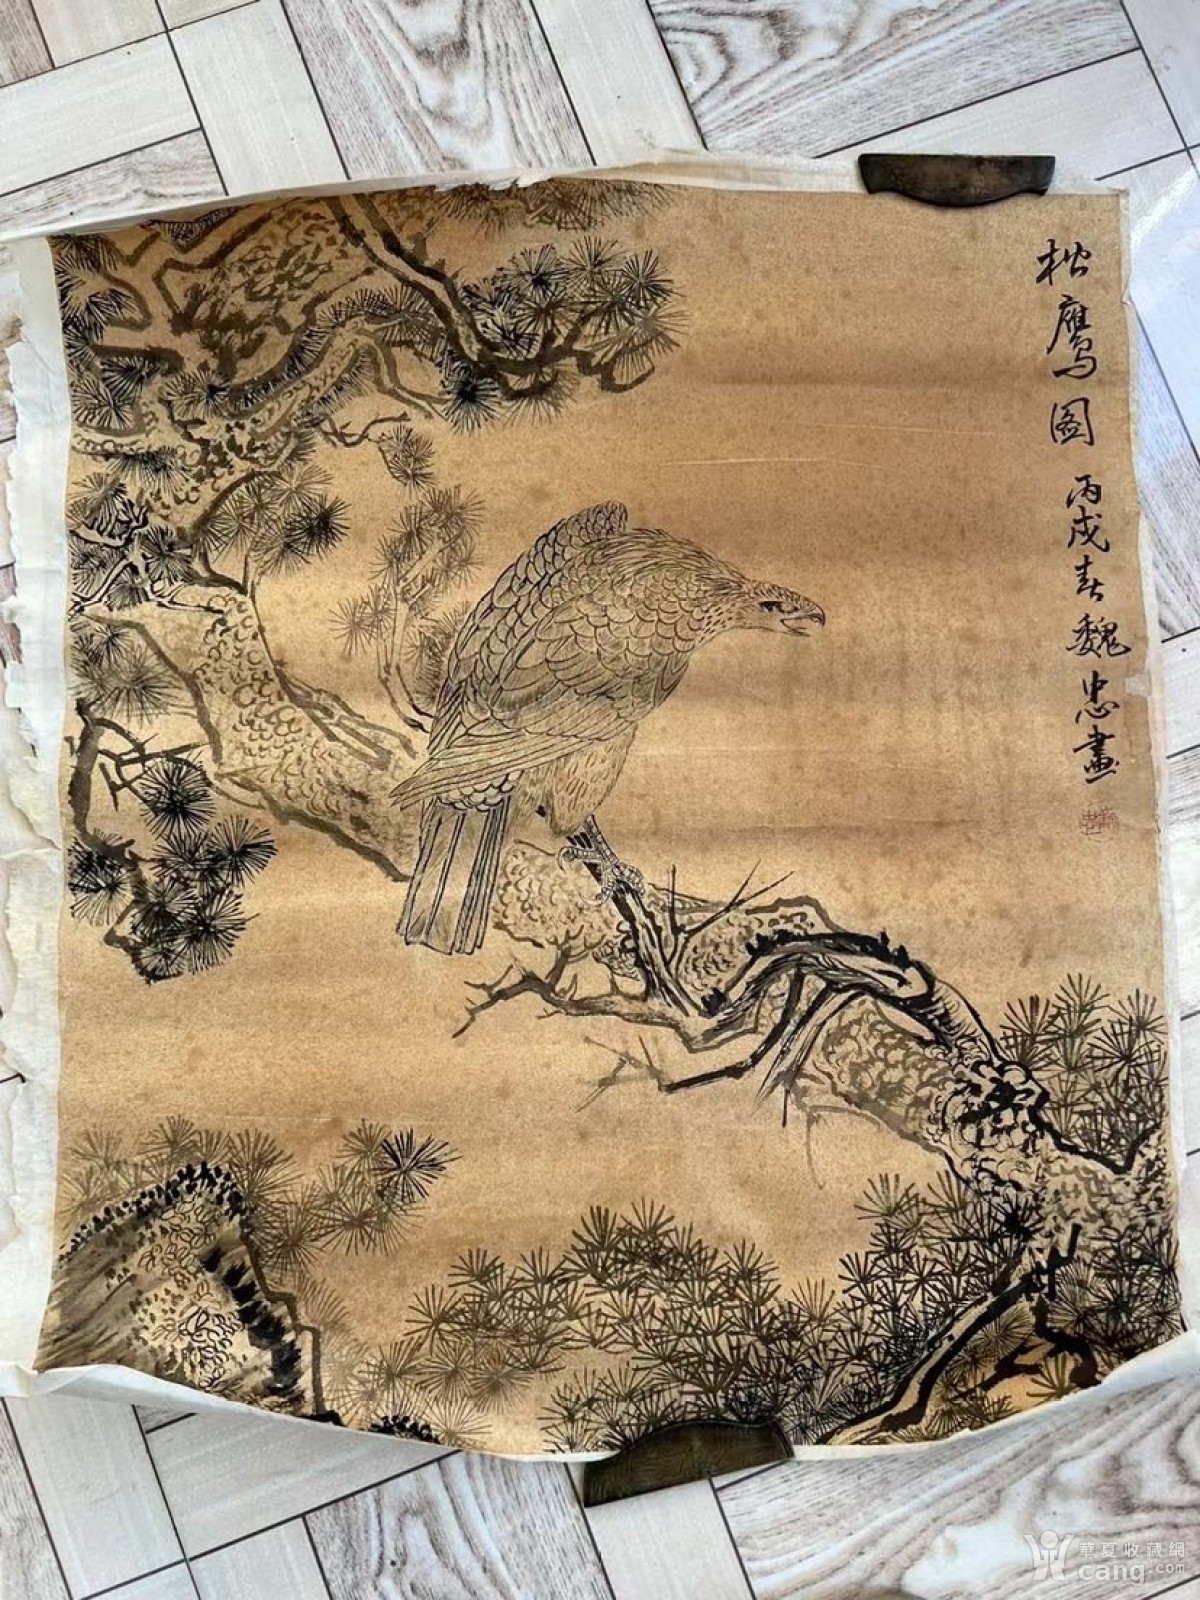 松鹰图 丙戌春魏忠畫
華夏收藏網
cang.com